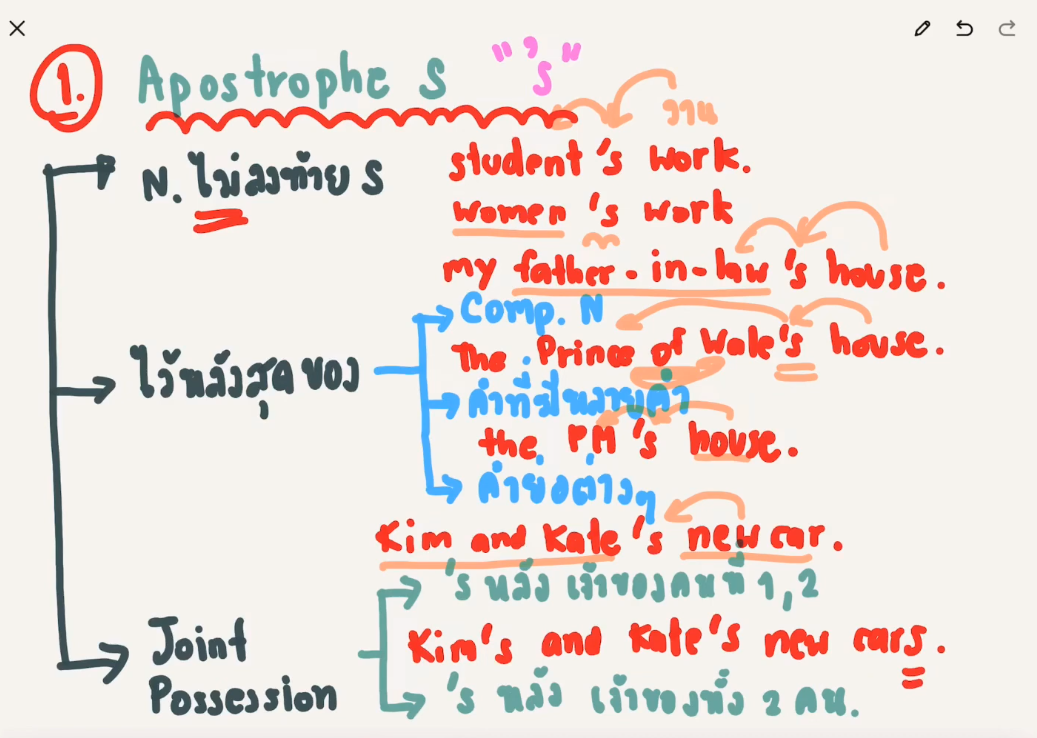 1. Apostrophe S "'s"
งาน
N. ไม่ลงท้าย S
student's work.
women's work
my father-in-law's house.
ไว้หลังสุดของ
Comp. N
The Prince of Wale's house.
คำที่มีหลายคำ
the PM's house.
คำย่อต่างๆ
Kim and Kate's new car.
's หลัง เจ้าของคนที่ 1,2
Joint
Possession
Kim's and Kate's new cars.
's หลัง เจ้าของทั้ง 2 คน.